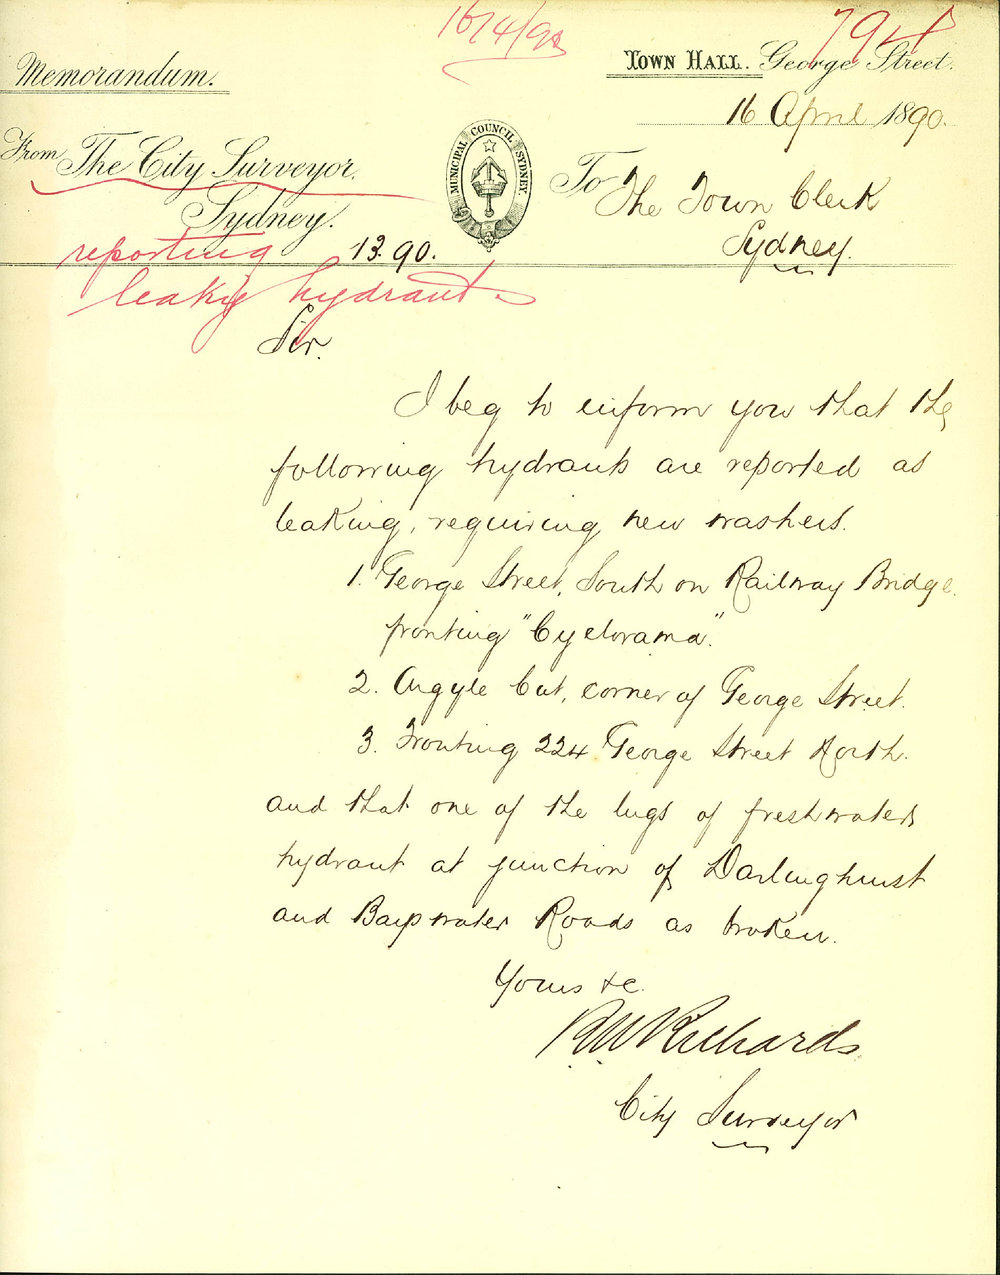 16/4/90
794
Memorandum.
TOWN HALL. George Street.
16 April 1890.
From The City Surveyor,
Sydney.
MUNICIPAL COUNCIL SYDNEY.
To The Town Clerk
Sydney.
reporting
13.90.
leaky hydrants
Sir.
I beg to inform you that the
following hydrants are reported as
leaking, requiring new washers.
1. George Street, South on Railway Bridge.
fronting "Cyclorama".
2. Argyle Cut, corner of George Street.
3. Fronting 224 George Street North.
and that one of the lugs of freshwater
hydrant at junction of Darlinghurst
and Bayswater Roads as broken.
Yours &c.
RW Richards
City Surveyor